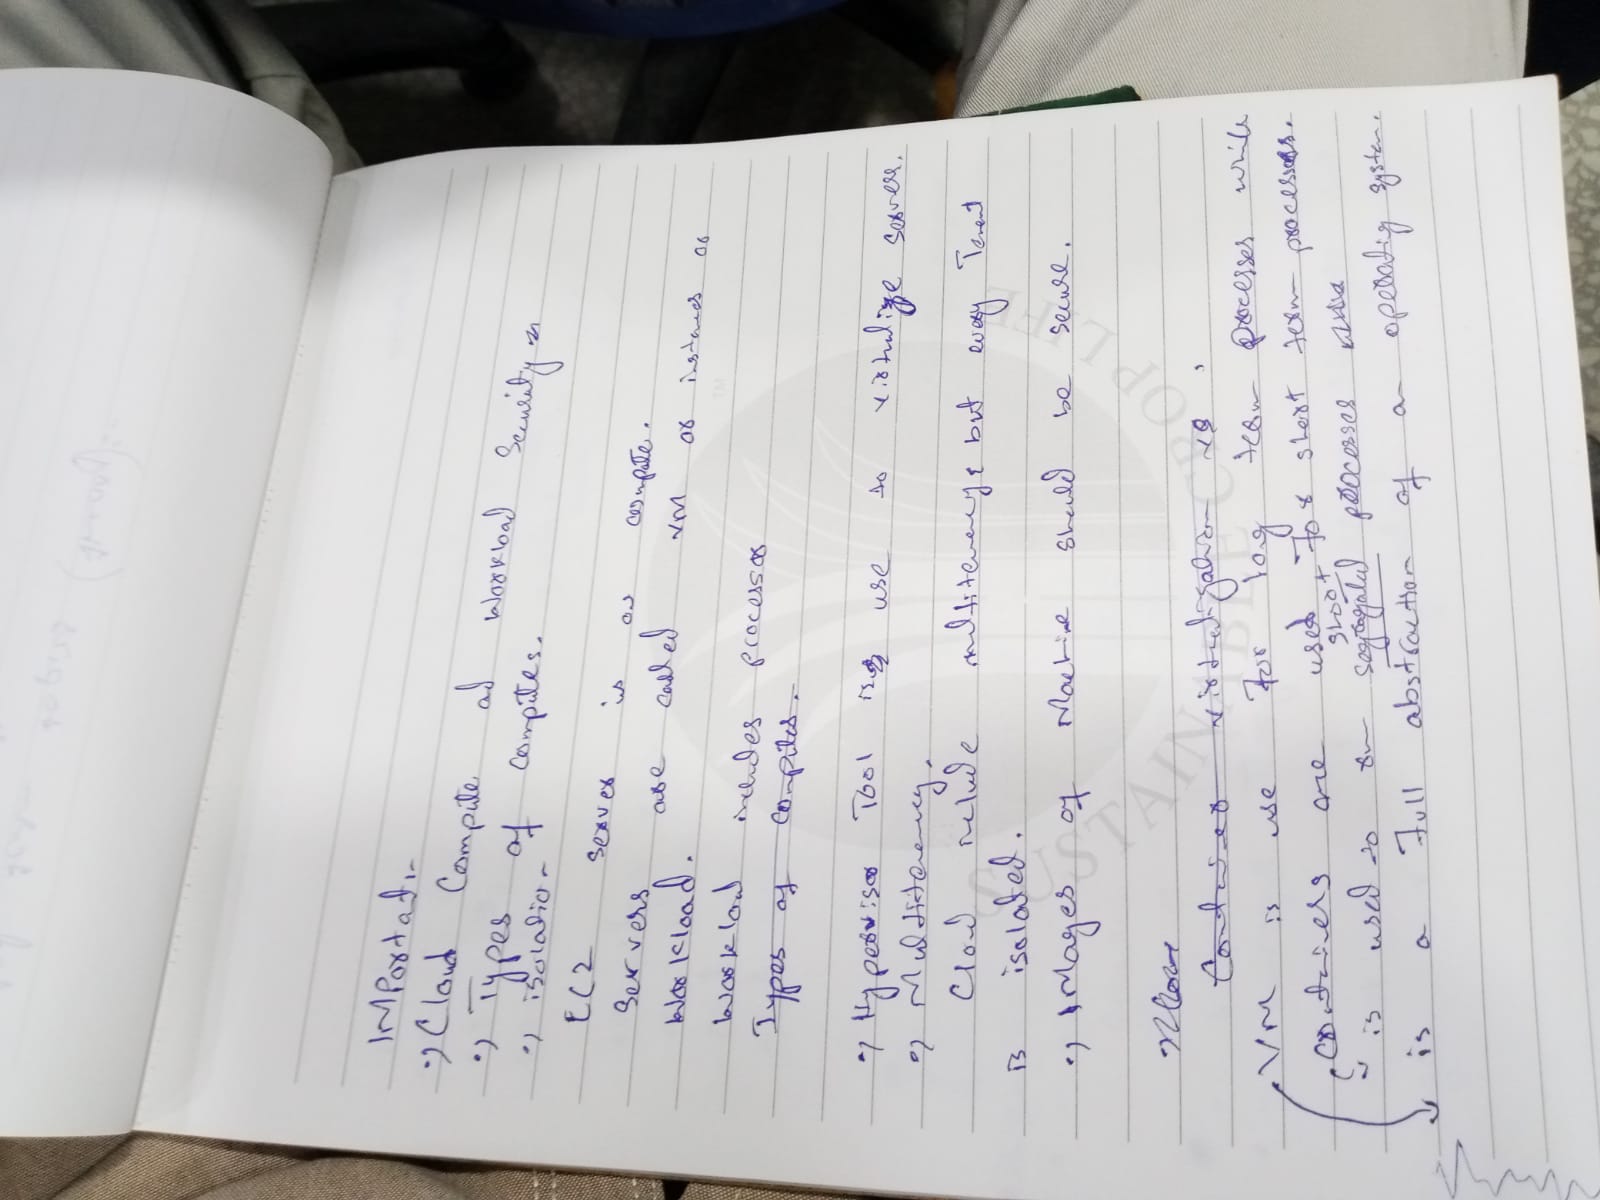 IMPortat:-
•) Cloud Compute ad workload Security
•) Types of computes.
•) isolatio-
EC2
Server is as compute.
Servers are called VM or instaces or
Workload.
Workload includes processor
Types of computes.
•) Hypervisor Tool is use to virtulize servers.
•) Multitenency.
Cloud include multitenency but every Tenent
is isolated.
•) Images of Machine should be secure.
Container virtulization VS
VM is use For long term processes while
Containers are used For short term processes.
short
is used to segregated processes
is a Full abstraction of a operatig system.
SUSTAIN THE CROP OF LIFE
TM